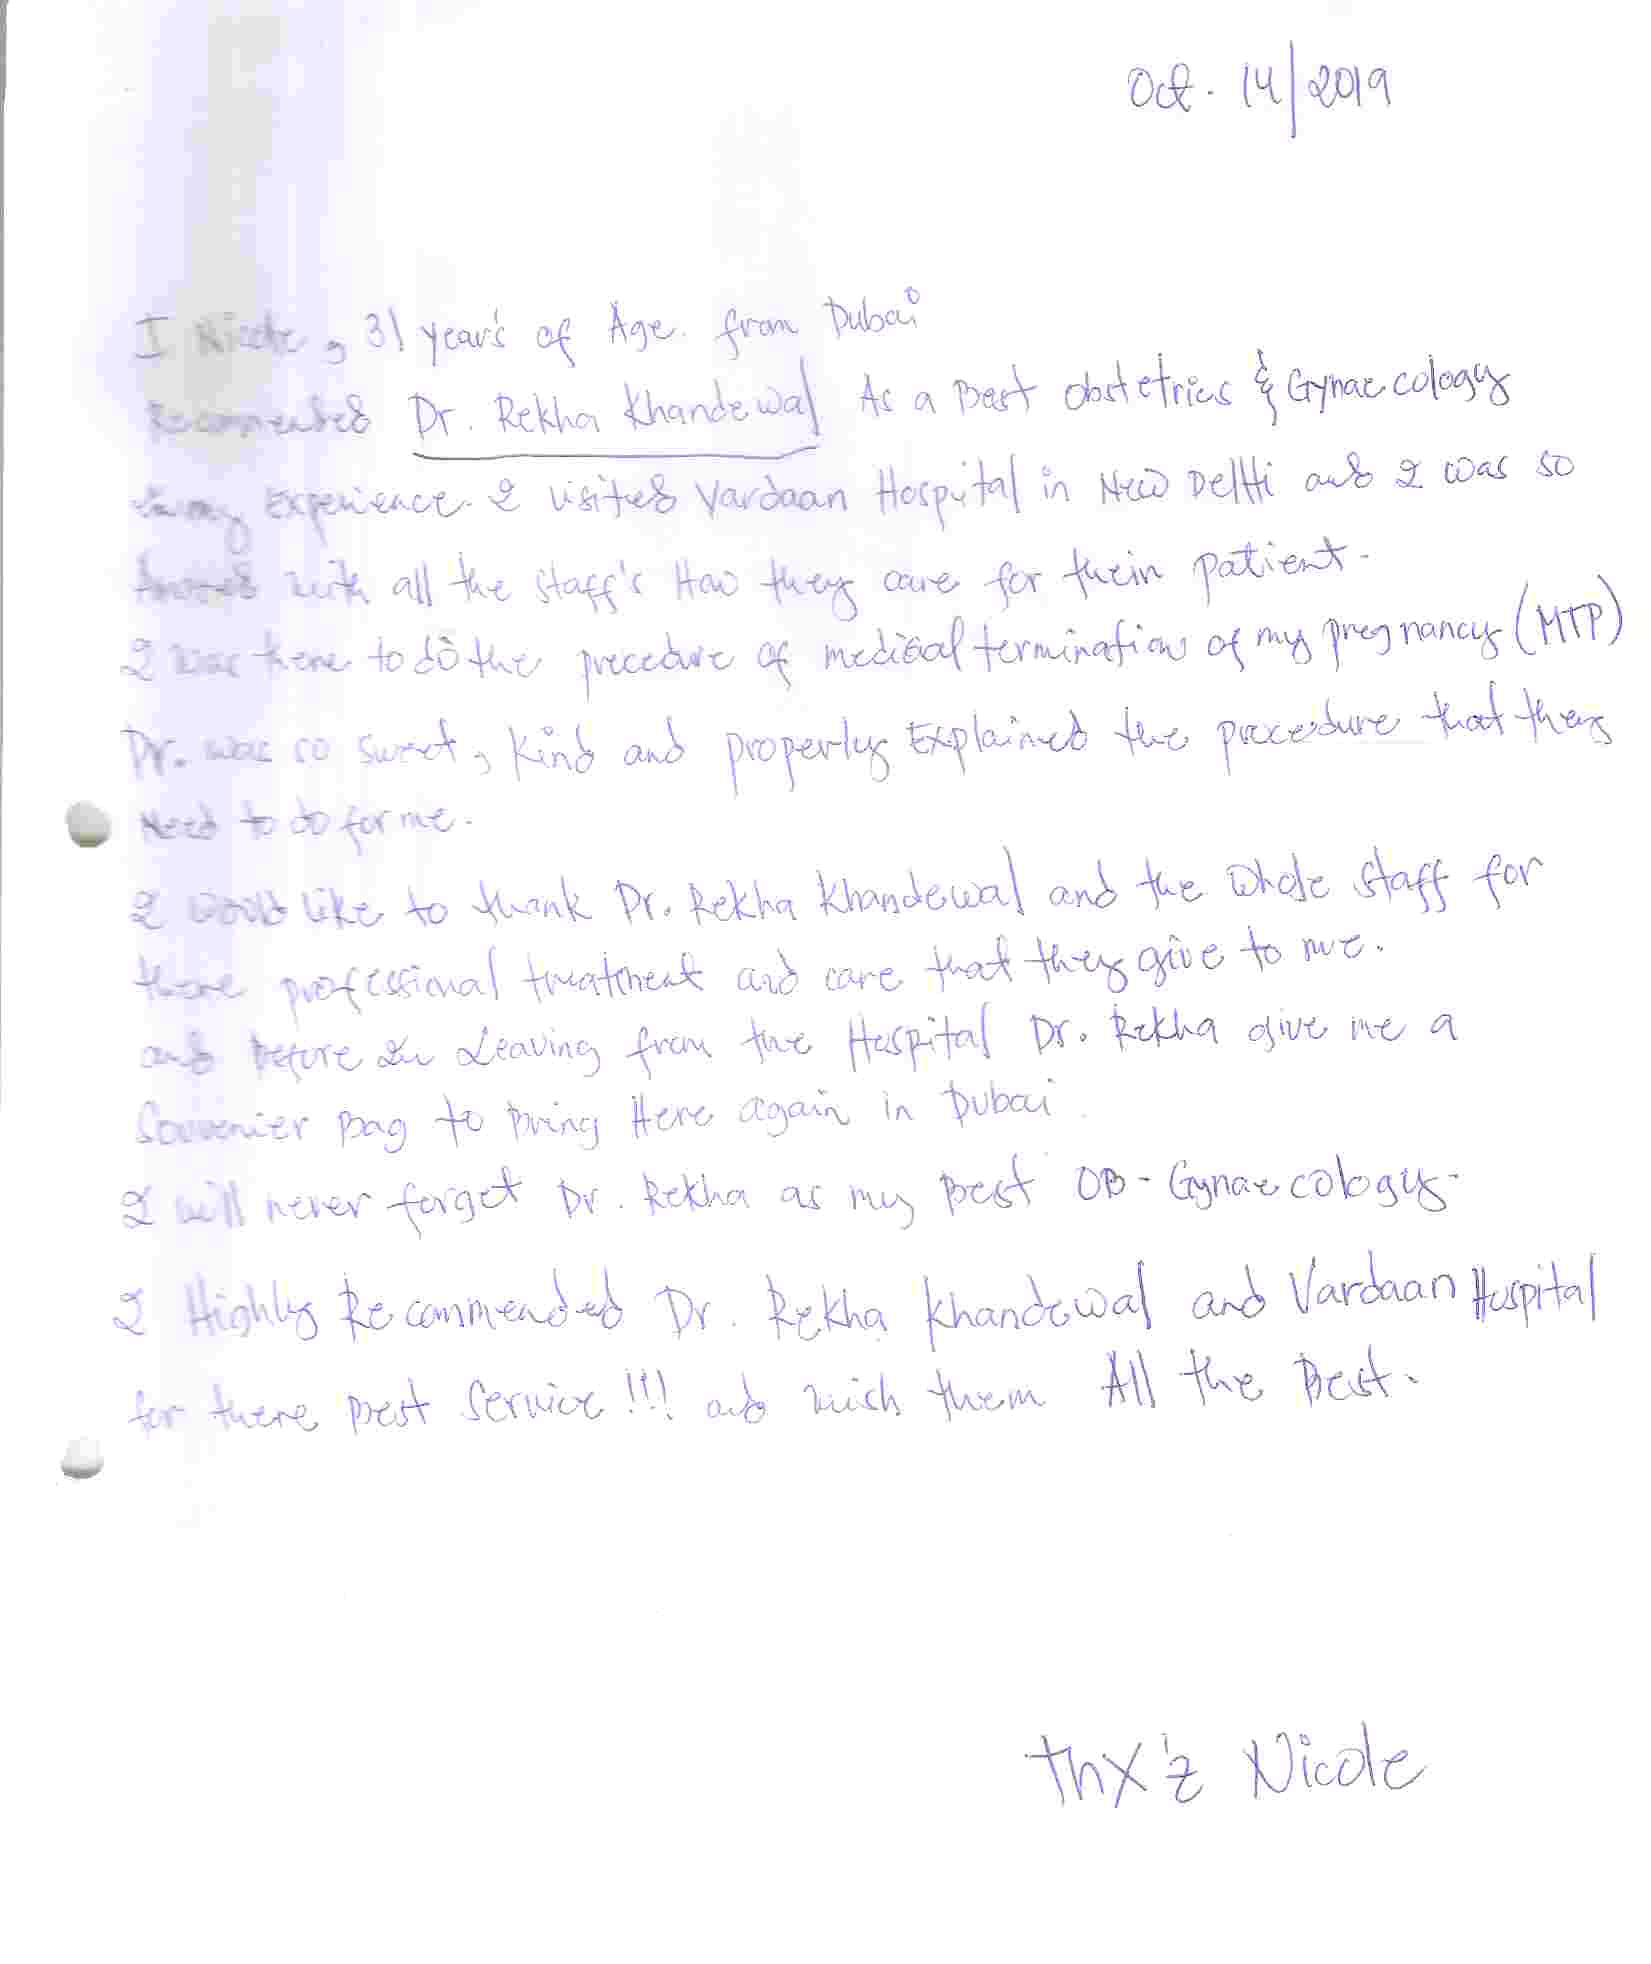 Oct. 14/2019
I Nicole, 31 year's of Age. from Dubai
Recommended Dr. Rekha Khandewal As a Best Obstetrics & Gynaecology
in my Experience. I visited Vardaan Hospital in New Delhi and I was so
with all the staff's How they care for their patient.
I was there to do the precedure of medical termination of my pregnancy (MTP)
Dr. was so sweet, Kind and properly Explained the procedure that they
Need to do for me.
I would like to thank Dr. Rekha Khandewal and the whole staff for
there professional treatment and care that they give to me.
and before Im Leaving from the Hospital Dr. Rekha give me a
Souvenier Bag to Bring Here again in Dubai.
I will never forget Dr. Rekha as my Best OB-Gynaecology.
I Highly Recommended Dr. Rekha Khandewal and Vardaan Hospital
for there Best Service!!! and wish them All the Best.
thx'z Nicole